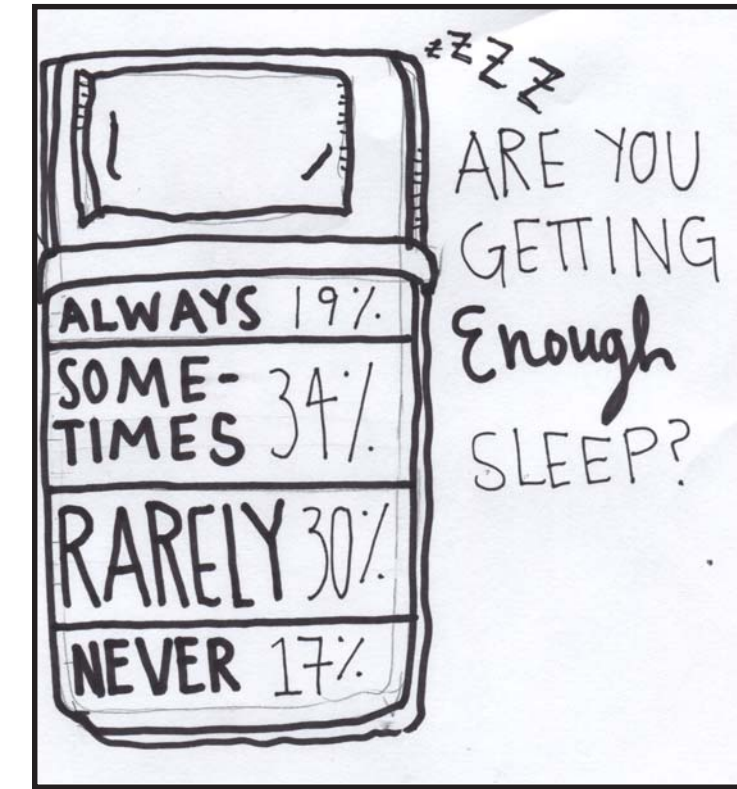 zZZZ
ARE YOU
GETTING
Enough
SLEEP?
ALWAYS 19%
SOME-
TIMES 34%
RARELY 30%
NEVER 17%